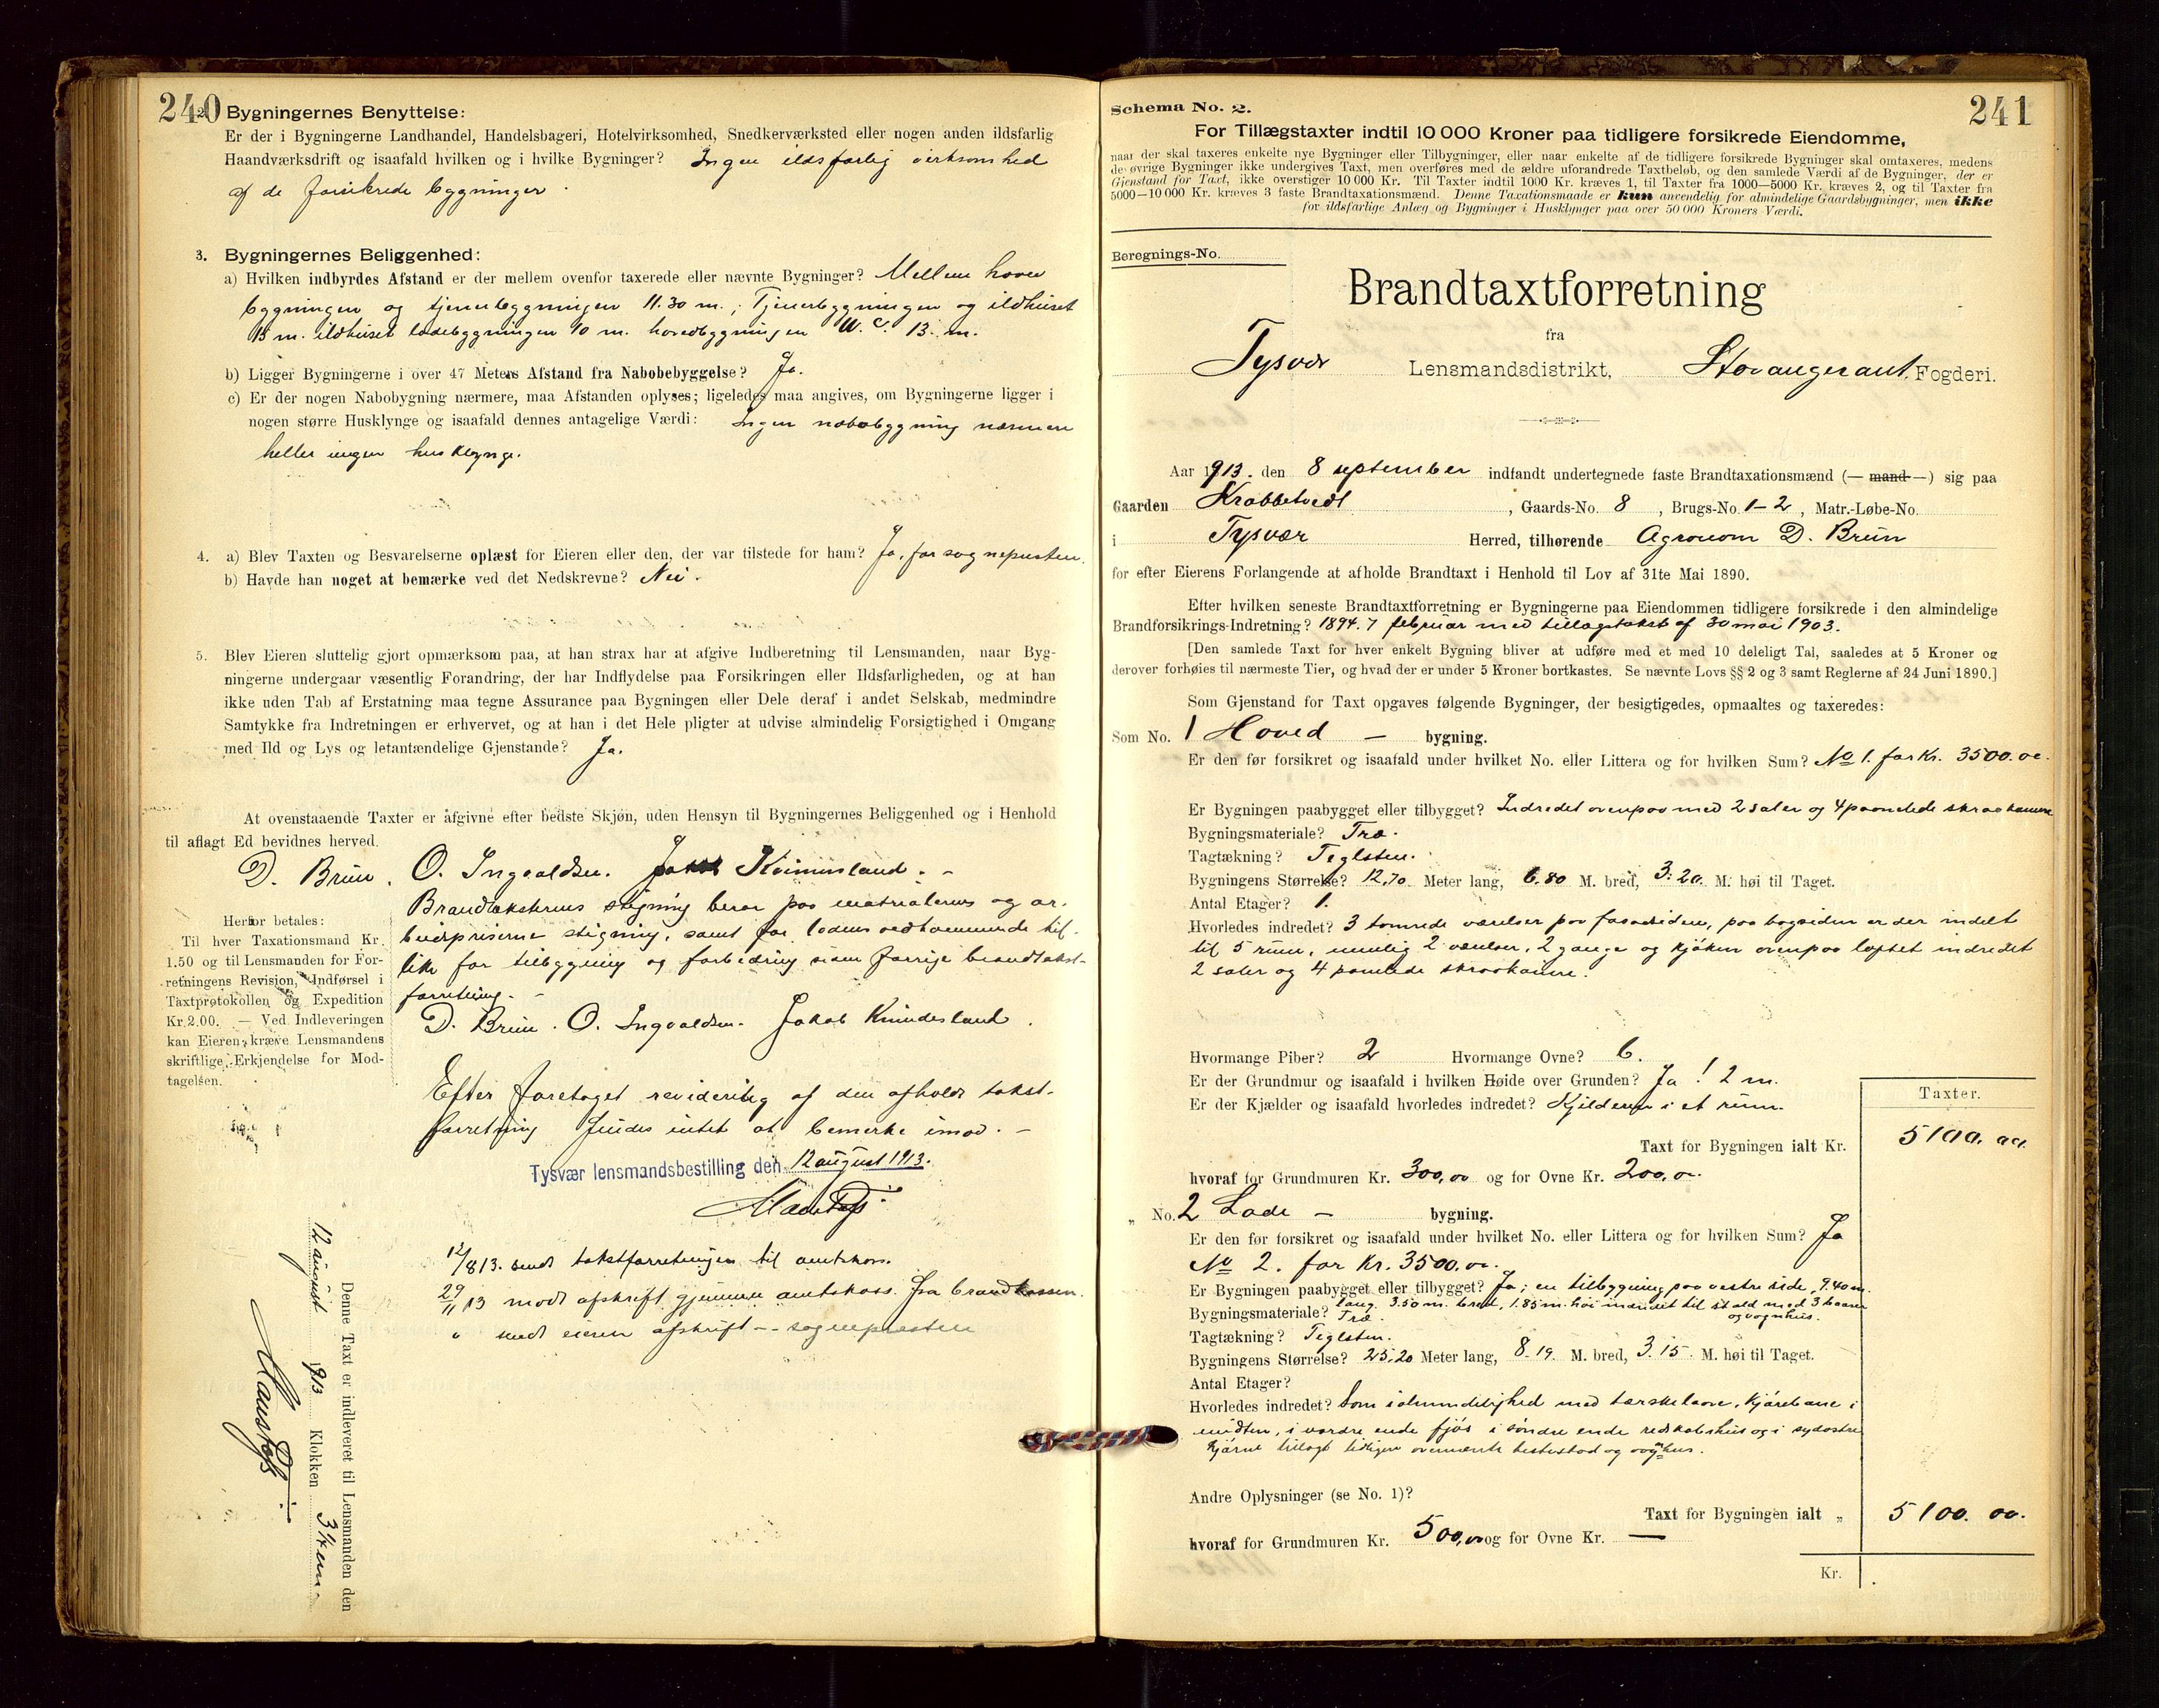 240
2. Bygningernes Benyttelse:
Er der i Bygningerne Landhandel, Handelsbageri, Hotelvirksomhed, Snedkerværksted eller nogen anden ildsfarlig
Haandværksdrift og isaafald hvilken og i hvilke Bygninger? Ingen ildsfarlig virksomhed
af de forsikrede bygninger.
3. Bygningernes Beliggenhed:
a) Hvilken indbyrdes Afstand er der mellem ovenfor taxerede eller nævnte Bygninger? Mellem hoved
bygningen og tjenerbygningen 11.30 m., Tjenerbygningen og ildhuset
13 m. ildhuset ladebygningen 40 m. hovedbygningen W.C. 13. m.
b) Ligger Bygningerne i over 47 Meters Afstand fra Nabobebyggelse? Ja.
c) Er der nogen Nabobygning nærmere, maa Afstanden oplyses; ligeledes maa angives, om Bygningerne ligger i
nogen større Husklynge og isaafald dennes antagelige Værdi: Ingen nabobygning nærmere
heller ingen husklynge.
4. a) Blev Taxten og Besvarelserne oplæst for Eieren eller den, der var tilstede for ham? Ja, for sognepresten.
b) Havde han noget at bemærke ved det Nedskrevne? Nei.
5. Blev Eieren sluttelig gjort opmærksom paa, at han strax har at afgive Indberetning til Lensmanden, naar Byg-
ningerne undergaar væsentlig Forandring, der har Indflydelse paa Forsikringen eller Ildsfarligheden, og at han
ikke uden Tab af Erstatning maa tegne Assurance paa Bygningen eller Dele deraf i andet Selskab, medmindre
Samtykke fra Indretningen er erhvervet, og at han i det Hele pligter at udvise almindelig Forsigtighed i Omgang
med Ild og Lys og letantændelige Gjenstande? Ja.
At ovenstaaende Taxter er afgivne efter bedste Skjøn, uden Hensyn til Bygningernes Beliggenhed og i Henhold
til aflagt Ed bevidnes herved.
D. Brün. O. Ingvaldsen. Jakob
Brandtaksternes stigning beror paa materialernes og ar-
beidspriserne stigning, samt for ladens vedkommende til-
like for tilbygning og forbedring siden forrige brandtakst-
forretning.
D. Brün. O. Ingvaldsen. Jakob
Herfor betales:
Til hver Taxationsmand Kr.
1.50 og til Lensmanden for For-
retningens Revision, Indførsel i
Taxtprotokollen og Expedition
Kr. 2.00. — Ved Indleveringen
kan Eieren kræve Lensmandens
skriftlige Erkjendelse for Mod-
tagelsen.
Efter foretaget revidering af den afholdt takst-
forretning findes intet at bemerke imod.
Tysvær lensmandsbestilling den 12 august 1913.
12/8 13. sendt takstforretningen til amtskon.
29/11 13 modt afskrift gjennem amtskass. fra brandkassen.
" sendt eieren afskrift -- sognepresten
Denne Taxt er indleveret til Lensmanden den
12 august 1913 Klokken 3
241
Schema No. 2.
For Tillægstaxter indtil 10 000 Kroner paa tidligere forsikrede Eiendomme,
naar der skal taxeres enkelte nye Bygninger eller Tilbygninger, eller naar enkelte af de tidligere forsikrede Bygninger skal omtaxeres, medens
de øvrige Bygninger ikke undergives Taxt, men overføres med de ældre uforandrede Taxtbeløb, og den samlede Værdi af de Bygninger, der er
Gjenstand for Taxt, ikke overstiger 10 000 Kr. Til Taxter indtil 1000 Kr. kræves 1, til Taxter fra 1000—5000 Kr. kræves 2, og til Taxter fra
5000—10 000 Kr. kræves 3 faste Brandtaxationsmænd. Denne Taxationsmaade er kun anvendelig for almindelige Gaardsbygninger, men ikke
for ildsfarlige Anlæg og Bygninger i Husklynger paa over 50 000 Kroners Værdi.
Beregnings-No.
Brandtaxtforretning
fra
Tysvær Lensmandsdistrikt, Stavanger amt. Fogderi.
Aar 1913. den 8 september indfandt undertegnede faste Brandtaxationsmænd (— mand —) sig paa
Gaarden Krabbetvedt, Gaards-No. 8, Brugs-No. 1-2, Matr.-Løbe-No.
i Tysvær Herred, tilhørende Agronom D. Brün
for efter Eierens Forlangende at afholde Brandtaxt i Henhold til Lov af 31te Mai 1890.
Efter hvilken seneste Brandtaxtforretning er Bygningerne paa Eiendommen tidligere forsikrede i den almindelige
Brandforsikrings-Indretning? 1894. 7 februar med tillægstakst af 30 mai 1903.
[Den samlede Taxt for hver enkelt Bygning bliver at udføre med et med 10 deleligt Tal, saaledes at 5 Kroner og
derover forhøies til nærmeste Tier, og hvad der er under 5 Kroner bortkastes. Se nævnte Lovs §§ 2 og 3 samt Reglerne af 24 Juni 1890.]
Som Gjenstand for Taxt opgaves følgende Bygninger, der besigtigedes, opmaaltes og taxeredes:
Som No. 1 Hoved — bygning.
Er den før forsikret og isaafald under hvilket No. eller Littera og for hvilken Sum? No 1. for Kr. 3500.oo.
Er Bygningen paabygget eller tilbygget? Indredet ovenpaa med 2 saler og 4 panelede skraakamre
Bygningsmateriale? Træ.
Tagtækning? Teglsten.
Bygningens Størrelse? 12,70 Meter lang, 6.80 M. bred, 3.20. M. høi til Taget.
Antal Etager? 1.
Hvorledes indredet? 3 tømrede værelser paa fasadesiden, paa bagsiden er der indelt
til 5 rum, nemlig 2 værelser, 2 gange og kjøken ovenpaa loftet indredet
2 saler og 4 panelede skraakamre.
Hvormange Piber? 2 Hvormange Ovne? 6.
Er der Grundmur og isaafald i hvilken Høide over Grunden? Ja! 2 m.
Er der Kjælder og isaafald hvorledes indredet? Kjelderen i et rum.
Taxter.
Taxt for Bygningen ialt Kr. 5100.oo.
hvoraf for Grundmuren Kr. 300,oo og for Ovne Kr. 200,oo.
" No. 2 Lade — bygning.
Er den før forsikret og isaafald under hvilket No. eller Littera og for hvilken Sum? Ja
No 2. for Kr. 3500.oo.
Er Bygningen paabygget eller tilbygget? Ja; en tilbygning paa vestre side, 9.40 m.
lang. 3.50 m. bred, 1.85 m. høi indredet til stald med 3 baase
og vognhus.
Bygningsmateriale? Træ.
Tagtækning? Teglsten.
Bygningens Størrelse? 25,20 Meter lang, 8.19. M. bred, 3.15. M. høi til Taget.
Antal Etager?
Hvorledes indredet? Som i almindelighed med tærskelaave, kjørebane i
midten, i nordre ende fjøs i søndre ende redskabshus og i sydøstre
hjørne tillagt tidligere ovennævnte hestestad og vognhus.
Andre Oplysninger (se No. 1)?
Taxt for Bygningen ialt " 5100. oo.
hvoraf for Grundmuren Kr. 500,oo og for Ovne Kr. —
Kr.